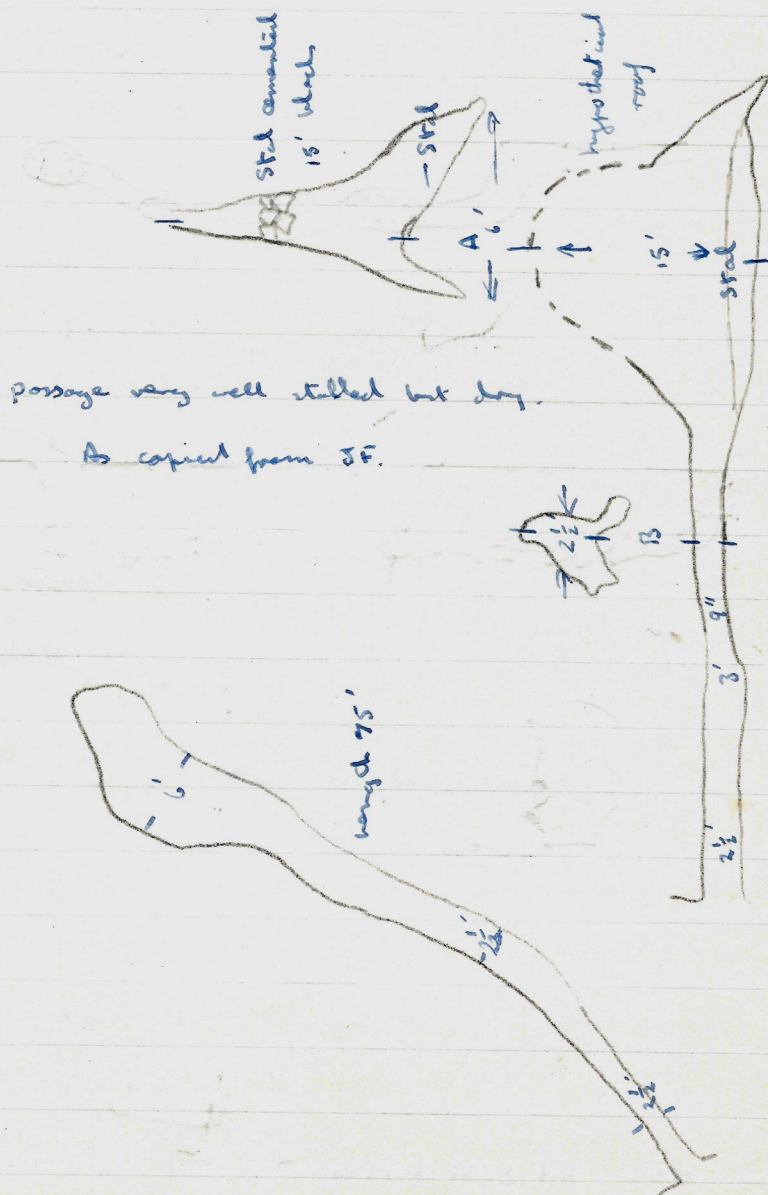 Stal cemented
15' blocks
- Stal
A
6'
hypothetical
roof
15'
Stal
passage very well stalled but dry.
As copied from JF.
2½'
B
9"
3'
2½'
6'
length 75'
2½'
2½'